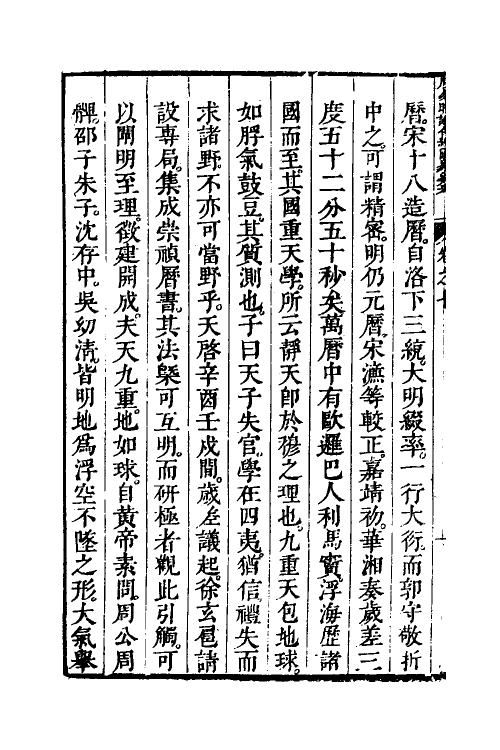 曆。宋十八造曆。自洛下三統。大明綴率。一行大衍。而郭守敬折
中之。可謂精密。明仍元曆。宋濂等較正。嘉靖初。華湘奏歲差三
度五十二分五十秒矣。萬曆中有歐邏巴人利馬竇。浮海歷諸
國而至。其國重天學。所云靜天卽於穆之理也。九重天包地球。
如脬氣鼓豆。其質測也。子曰天子失官。學在四夷。猶信。禮失而
求諸野。不亦可當野乎。天啓辛酉壬戌間。歲差議起。徐玄扈請
設專局。集成崇禎曆書。其法槩可互明。而研極者觀此引觸。可
以闡明至理。徵建開成。夫天九重。地如球。自黃帝素問。周公周
髀。邵子朱子。沈存中。吳幼清。皆明地爲浮空不墜之形。大氣舉